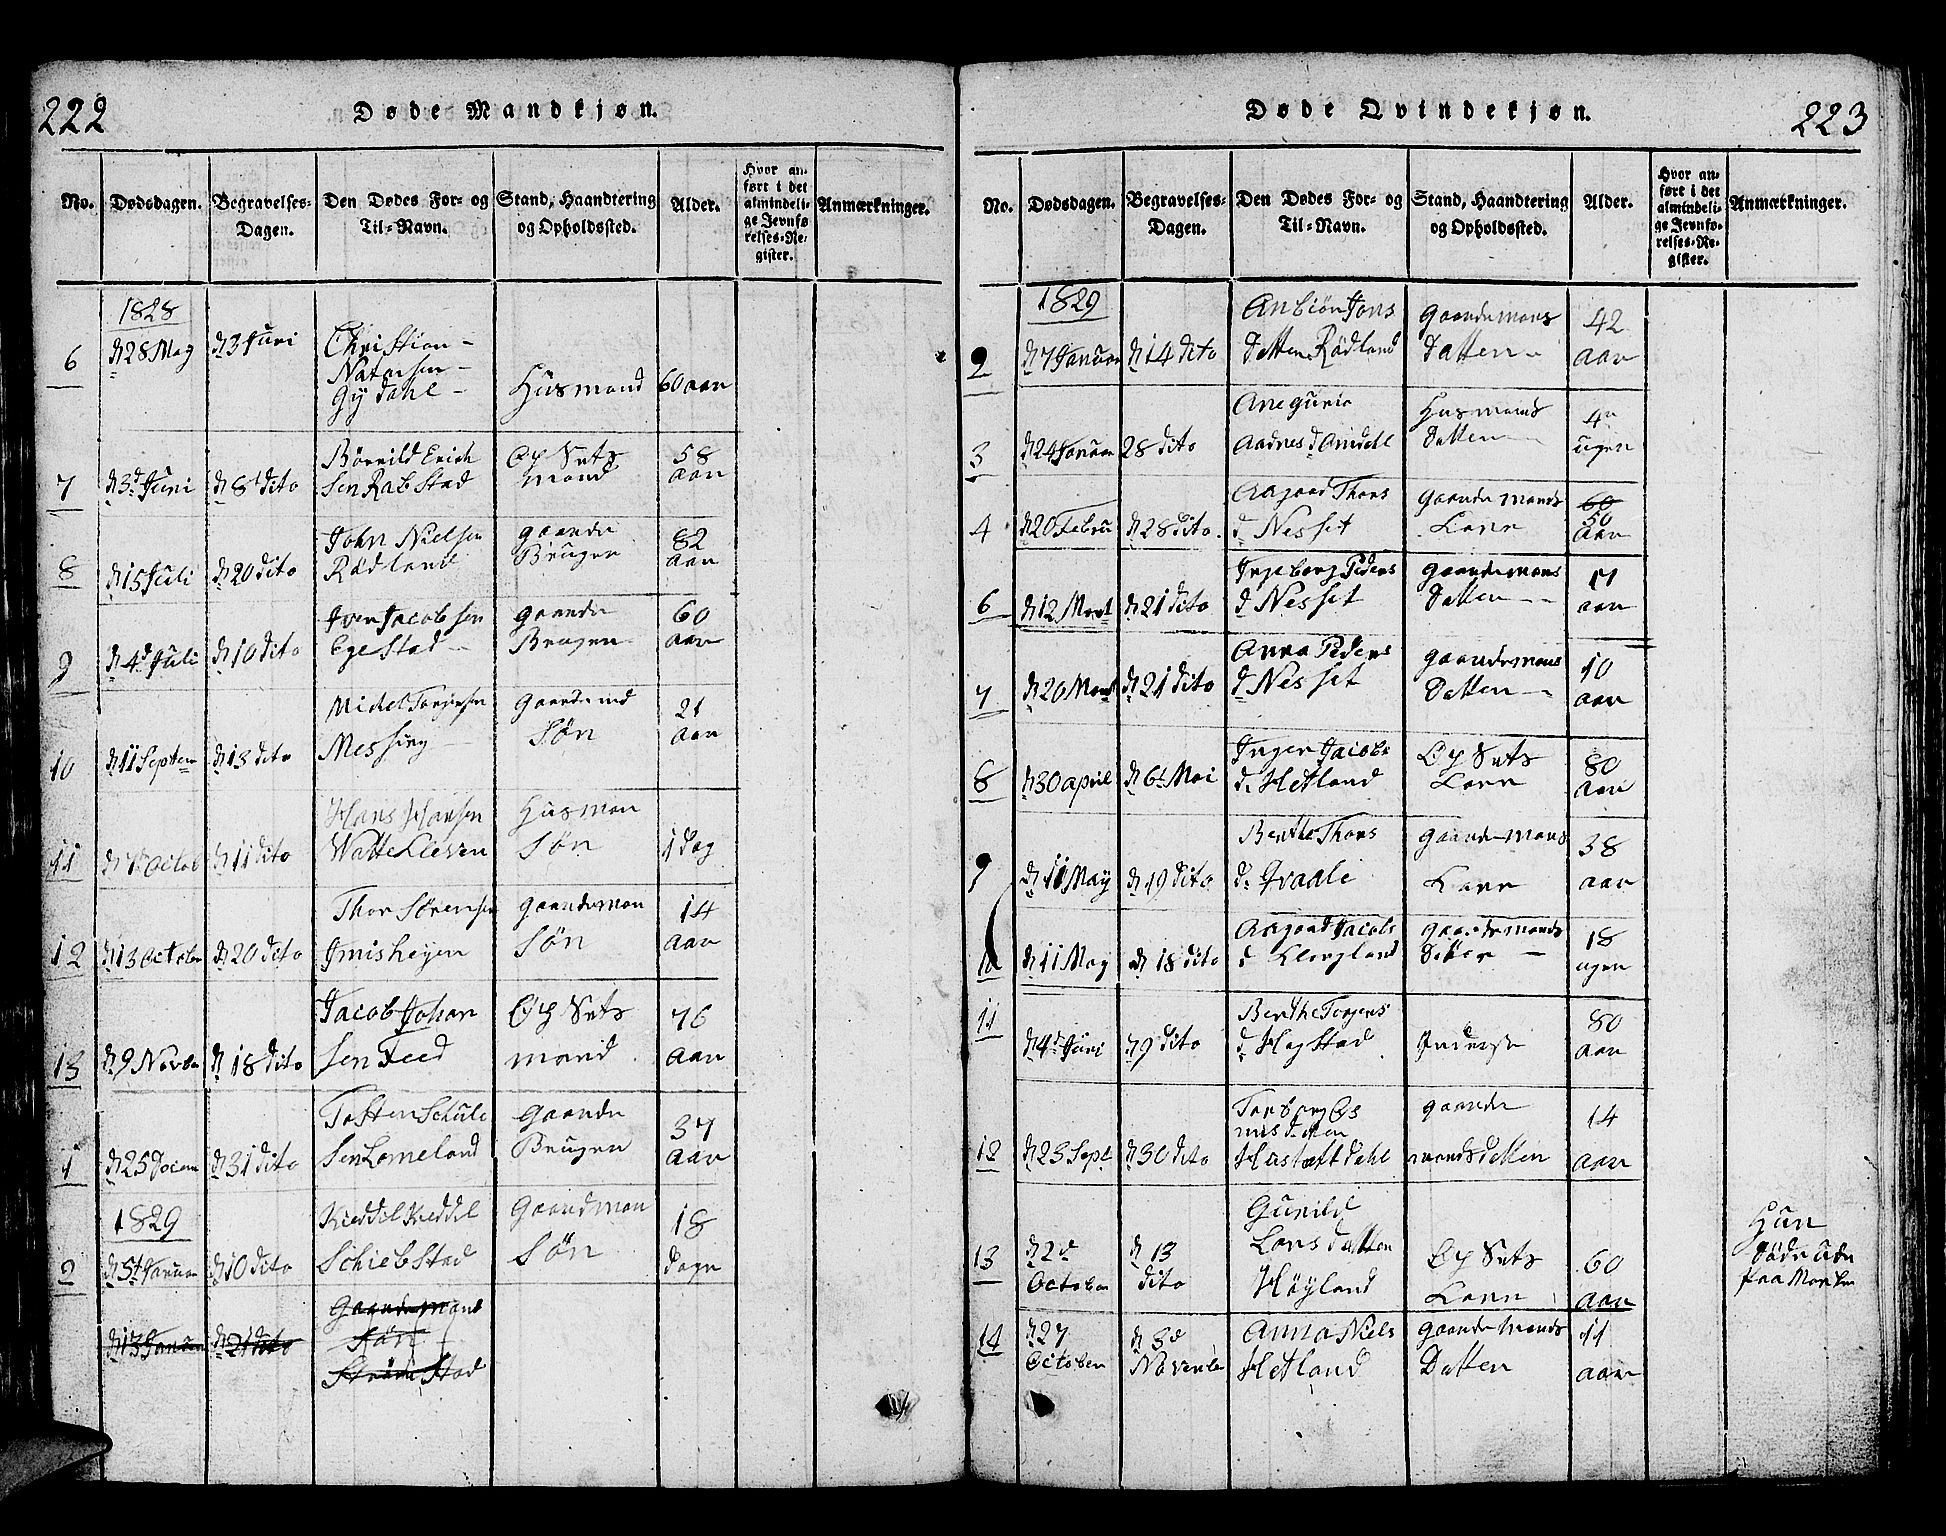 222
Døde Mandkjøn.
No. Dødsdagen. Begravelses-Dagen. Den Dødes For- og Til-Navn. Stand, Haandtering og Opholdssted. Alder. Hvor anført i det almindelige Jevnførelses-Register. Anmærkninger.
1828
6 d 28 May d 3 Juni Christian Natansen Gydahl Husmand 60 aar
7 d 3d Juni d 8d dito Børrild Erich Sen Rab Stad Op Sets mand 58 aar
8 d 15 Juli d 20 dito John Nielsen Rødland gaarde Bruger 82 aar
9 d 4d Juli d 10 dito Iver Jacobsen Egestad gaarde Bruger 60 aar
10 d 11 Septem d 13 dito Michel Torgersen Messing Søn 21 aar
11 Octob d 11 dito Hans Hansen Husman Søn 1 dag
12 d 13 October d 20 dito Thor Sørensen gaardeman Søn 14 aar
13 d 9 Novbr d 18 dito Jacob Johan Sen Feed Op Sets mand 76 aar
1 d 25 d 31 dito Tosten Schule Sen Lomeland Gaarde Bruger 37 aar
1829
2 d 5t Januar d 10 dito Kieddil Kieddil Schiebstad Gaardman Søn 18 dage
d 13 Januar d 21 dito Gaardemand Søn Stad
Døde Qvindekjøn.
223
No. Dødsdagen. Begravelses-Dagen. Den Dødes For- og Til-Navn. Stand, Haandtering og Opholdssted. Alder. Hvor anført i det almindelige Jevnførelses-Register. Anmærkninger.
1829
2 d 7 Januar d 14 dito Anbiør Jons datter Rødland gaardemans datter 42 aar
3 d 24 Januar 28 dito Ane Aadnes d Husmands datter 4 uger
4 d 20 Febru d 28 dito. Aagaad Thors d Nesset gaardemands Kone 60 50 aar
6 d 12 Mart d 21 dito Ingeborg Peders d Nesset gaardemans datter 17 aar
7 d 20 Mart d 21 dito Anna Peders d Nesset gaardemans datter 10 aar
8 d 30 april d 6t Mai Inger Jacobs d. Hetland Op Sets Kone 80 aar
9 d 11 May d 19 dito Berthe Thors d. Gvaale gaardemans Kone 38 aar
10 d 11 May d 18 dito Aagaad Jacobs d gaardemands 18 uger
11 d 4d Juni d 9 dito Berthe Torgers d. Hegstad Inderst 80 aar
12 d 23 Sept d 30 dito gaarde mandsdatter 14 aar
13 d 2d October d 13 dito Gunild Lars datter Høyland Op Sets Kone 60 aar Hun døde ude paa Marken
14 d 27 October d 3d November Anna Niels Hetland Gaardemands Datter 11 aar